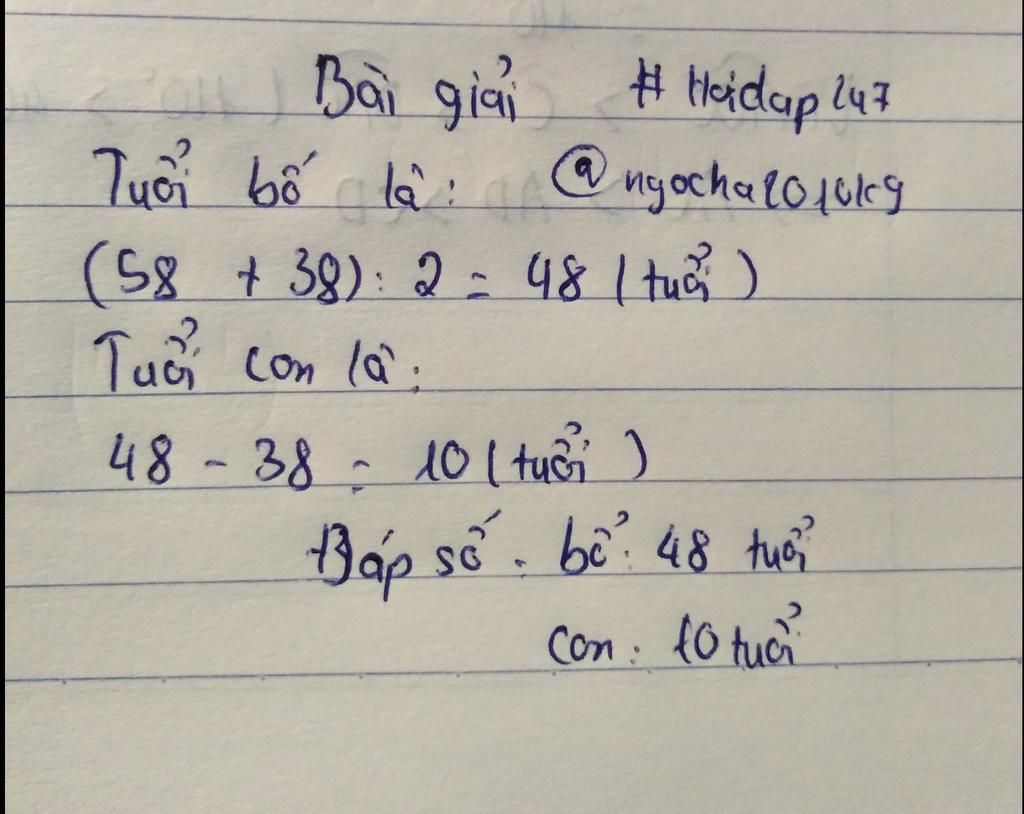 Bài giải # Hoidap247
Tuổi bố là: @ngocha2010kg
(58 + 38) : 2 = 48 (tuổi)
Tuổi con là:
48 - 38 = 10 (tuổi)
Đáp số: bố: 48 tuổi
con: 10 tuổi